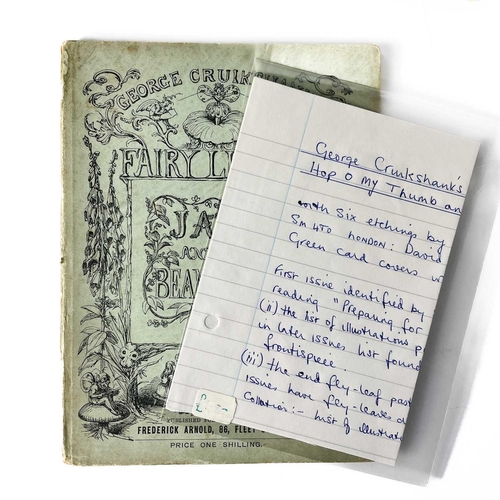 GEORGE CRUIK
FAIRY LI
JA
AND
BEA
PUBLISHED
FREDERICK ARNOLD, 86, FLEET
PRICE ONE SHILLING.
George Cruikshank's
Hop O My Thumb an
with Six etchings by
Sm 4to LONDON: David
Green card covers
First issue identified by
reading "Preparing for
(ii) the list of illustrations p
in later issues list found
frontispiece.
(iii) the end fly-leaf past
issues have fly-leaves
Collation:- list of illustrat